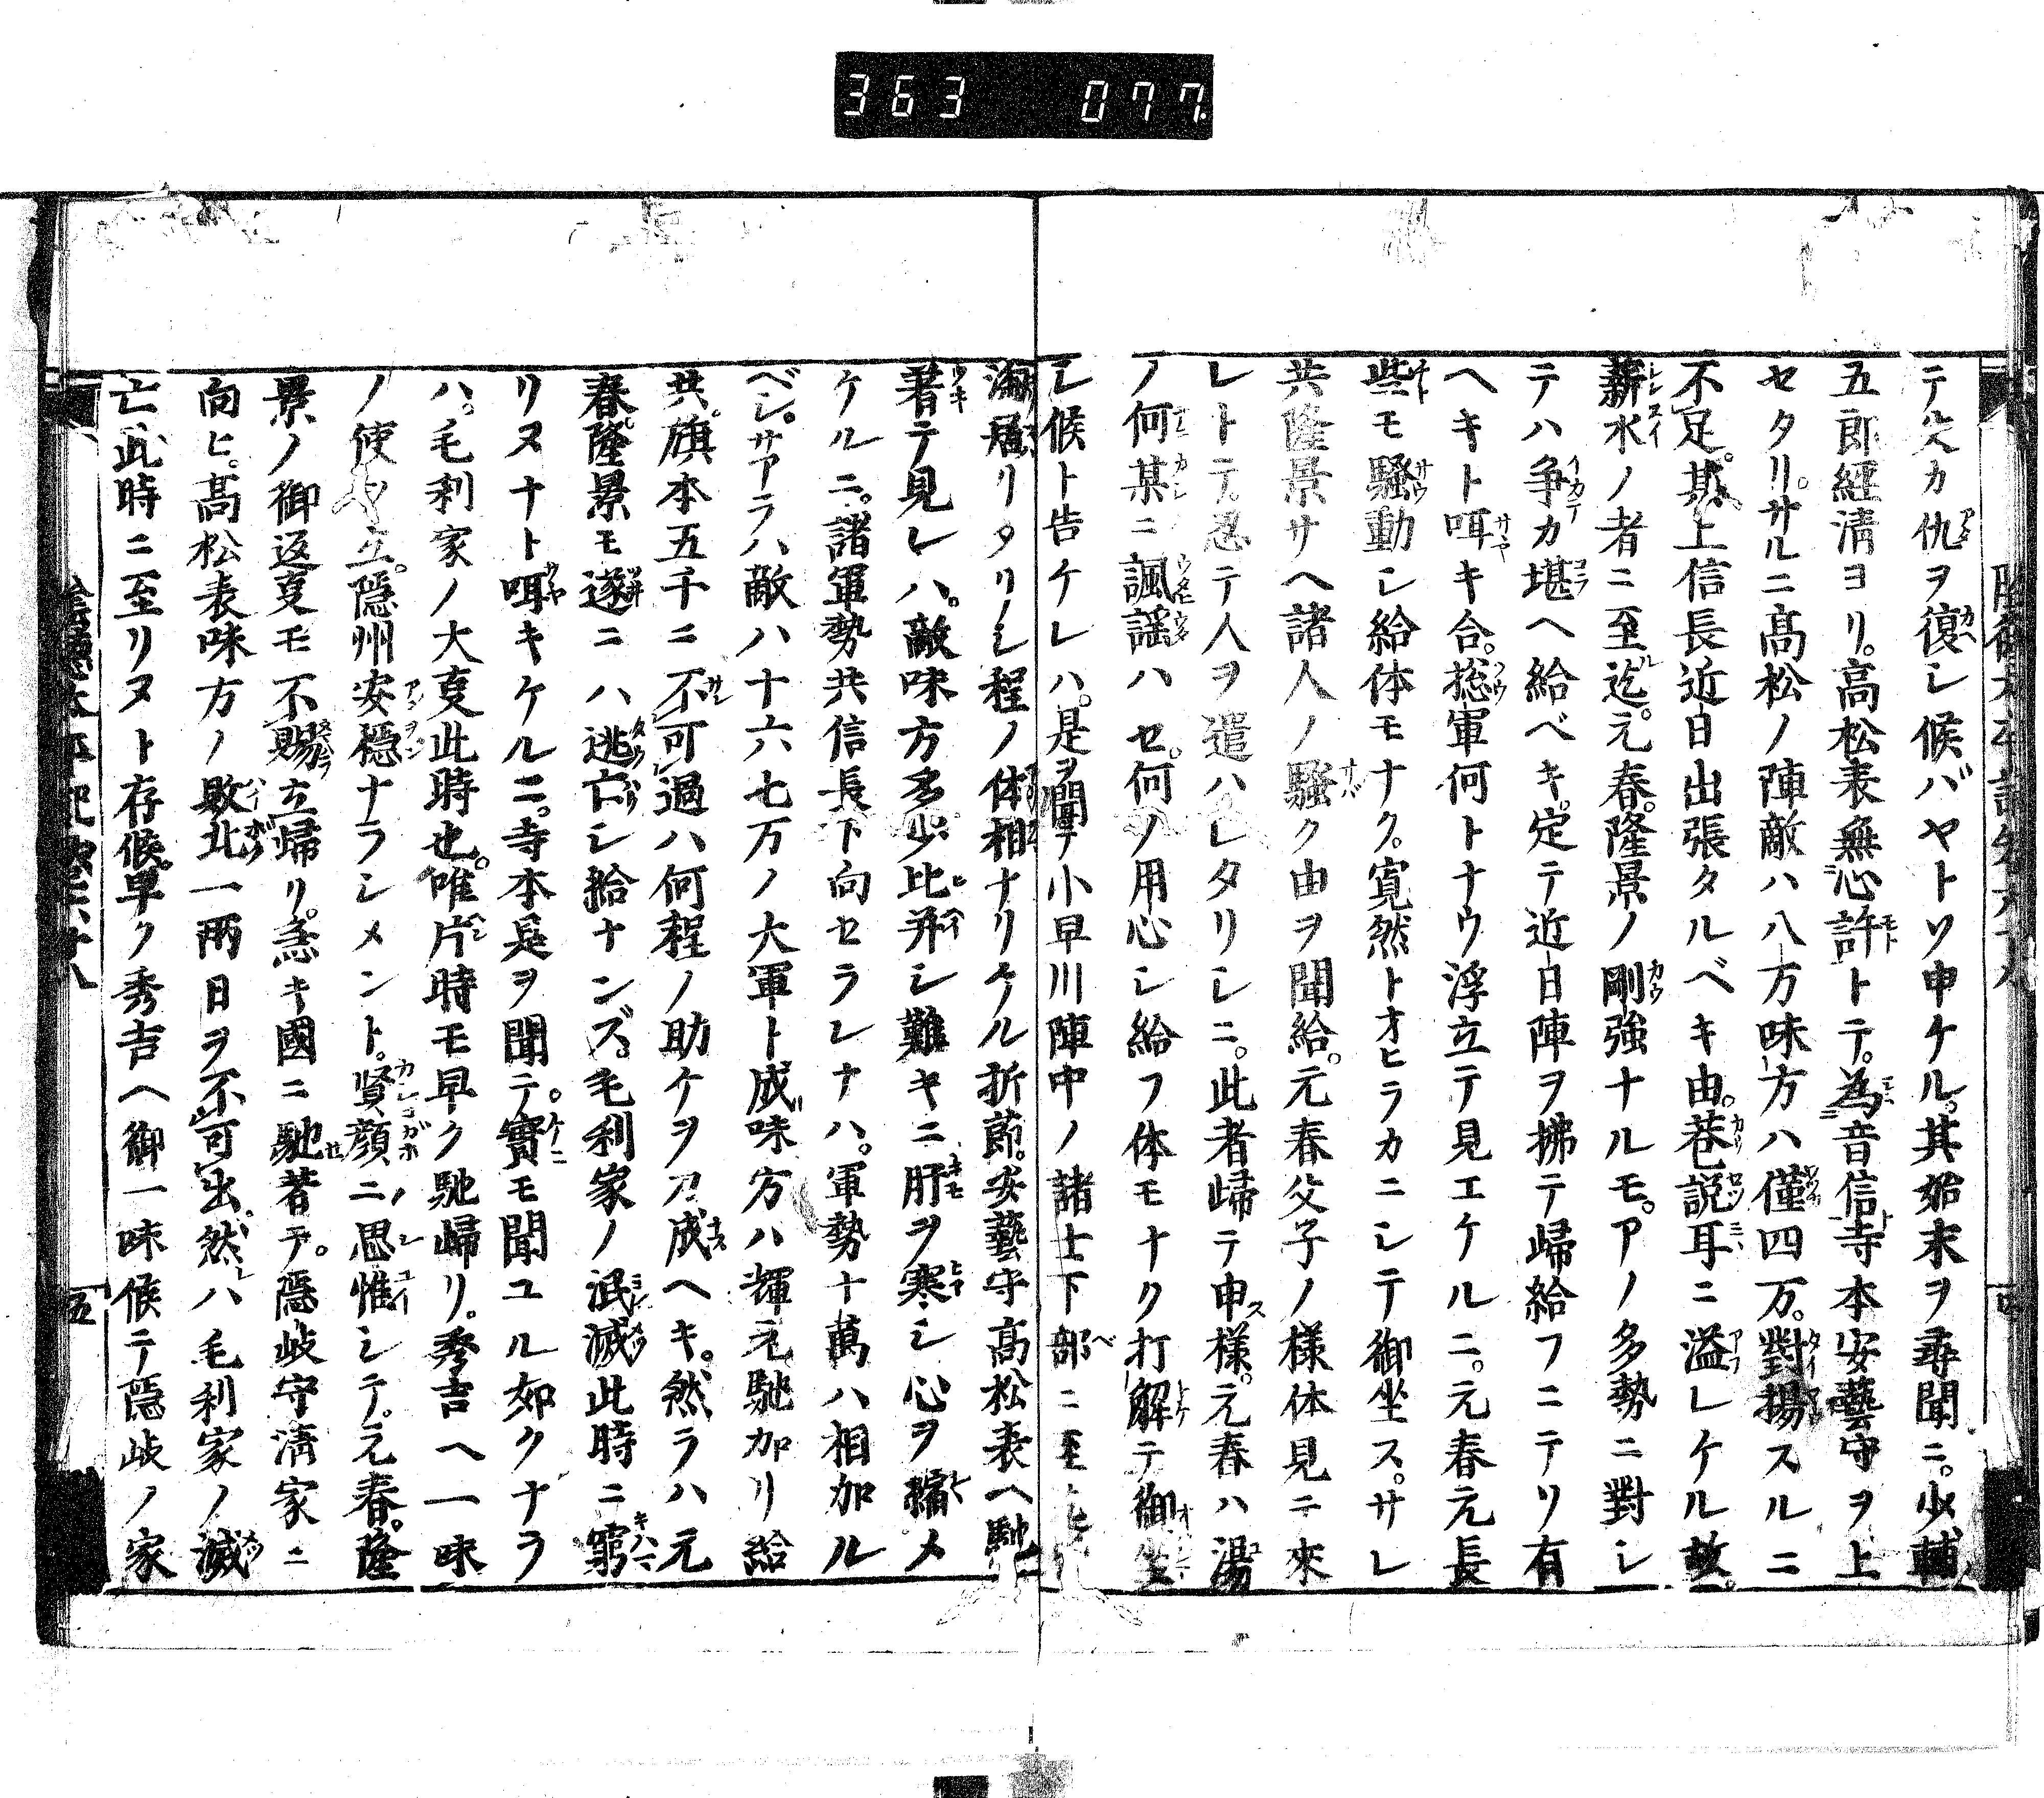 363 077
テ父カ仇ヲ復シ候バヤトソ申ケル。其始末ヲ尋聞ニ。少輔
五郎經清ヨリ。高松表無心許トテ。為音信寺本安藝守ヲ上
セタリ。サルニ髙松ノ陣敵ハ八万味方ハ僅四万。對揚スルニ
不足。其上信長近日出張タルベキ由。巷説耳ニ溢レケル故。
薪水ノ者ニ至迄。元春。隆景ノ剛強ナルモ。アノ多勢ニ對シ
テハ争カ堪ヘ給ベキ。定テ近日陣ヲ拂テ歸給フニテリ有
ヘキト咡キ合。揔軍何トナウ浮立テ見エケルニ。元春元長
些モ騒動シ給体モナク。寛然トオヒラカニシテ御坐ス。サレ
共隆景サヘ諸人ノ騒ク由ヲ聞給。元春父子ノ様体見ニ來
レトテ。忍テ人ヲ遣ハレタリシニ。此者歸テ申様。元春ハ湯
ノ何某ニ諷謡ハセ。何ノ用心シ給フ体モナク打解テ御坐
シ候ト告ケレハ。是ヲ聞テ小早川陣中ノ諸士下部ニ至
リタリシ程ノ体相ナリケル折節。安藝守髙松表ヘ馳
著テ見レハ。敵味方多少比并シ難キニ肝ヲ寒シ心ヲ縮メ
ケルニ。諸軍勢共信長下向セラレナハ。軍勢十萬ハ相加ル
ベシ。サアラハ敵ハ十六七万ノ大軍ト成味方ハ輝元馳加リ給
共。旗本五千ニ不可過ハ何程ノ助ケヲカ成ヘキ。然ラハ元
春。隆景モ遂ニハ逃亡シ給ナンズ。毛利家ノ泯滅此時ニ窮
リヌナト咡キケルニ。寺本是ヲ聞テ。實モ聞ユル如クナラ
ハ。毛利家ノ大変此時也。唯片時モ早ク馳歸リ。秀吉ヘ一味
ノ使ヲ立。隠州安穏ナラシメント。賢顔ニ思惟シテ。元春。隆
景ノ御返夏モ不賜立歸リ。急キ國ニ馳著テ。隠岐守清家ニ
向ヒ。髙松表味方ノ敗北一兩日ヲ不可出。然ハ毛利家ノ滅
亡此時ニ至リヌト存候。早ク秀吉ヘ御一味候テ隠岐ノ家
五